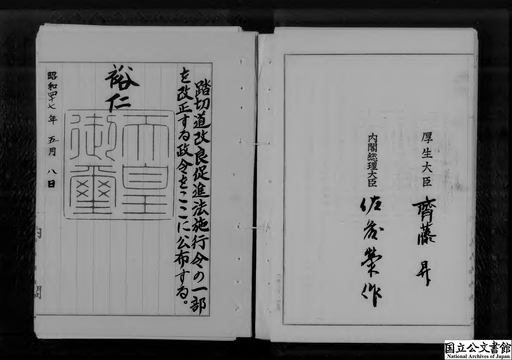 厚生大臣 齋藤昇
内閣総理大臣 佐藤榮作
踏切道改良促進法施行令の一部
を改正する政令をここに公布する。
裕仁
天皇
御璽
昭和四十七年五月八日
内閣
国立公文書館
National Archives of Japan